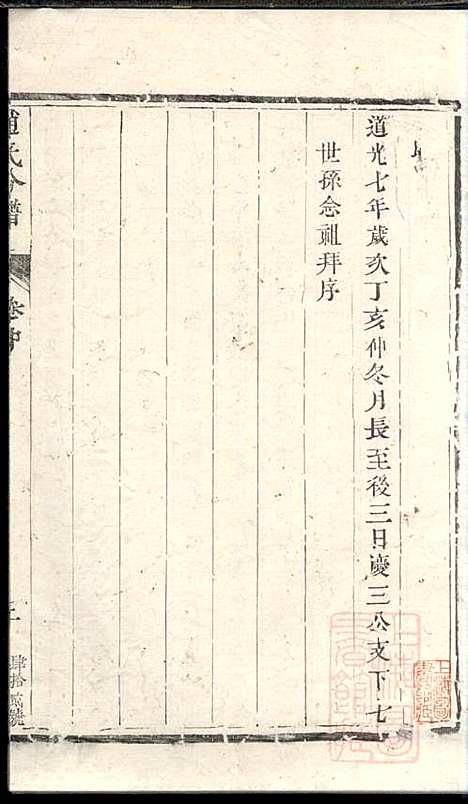 道光七年歲次丁亥仲冬月長至後三日慶三公支下七
世孫念祖拜序
趙氏合譜
卷中
三
肆拾貳號